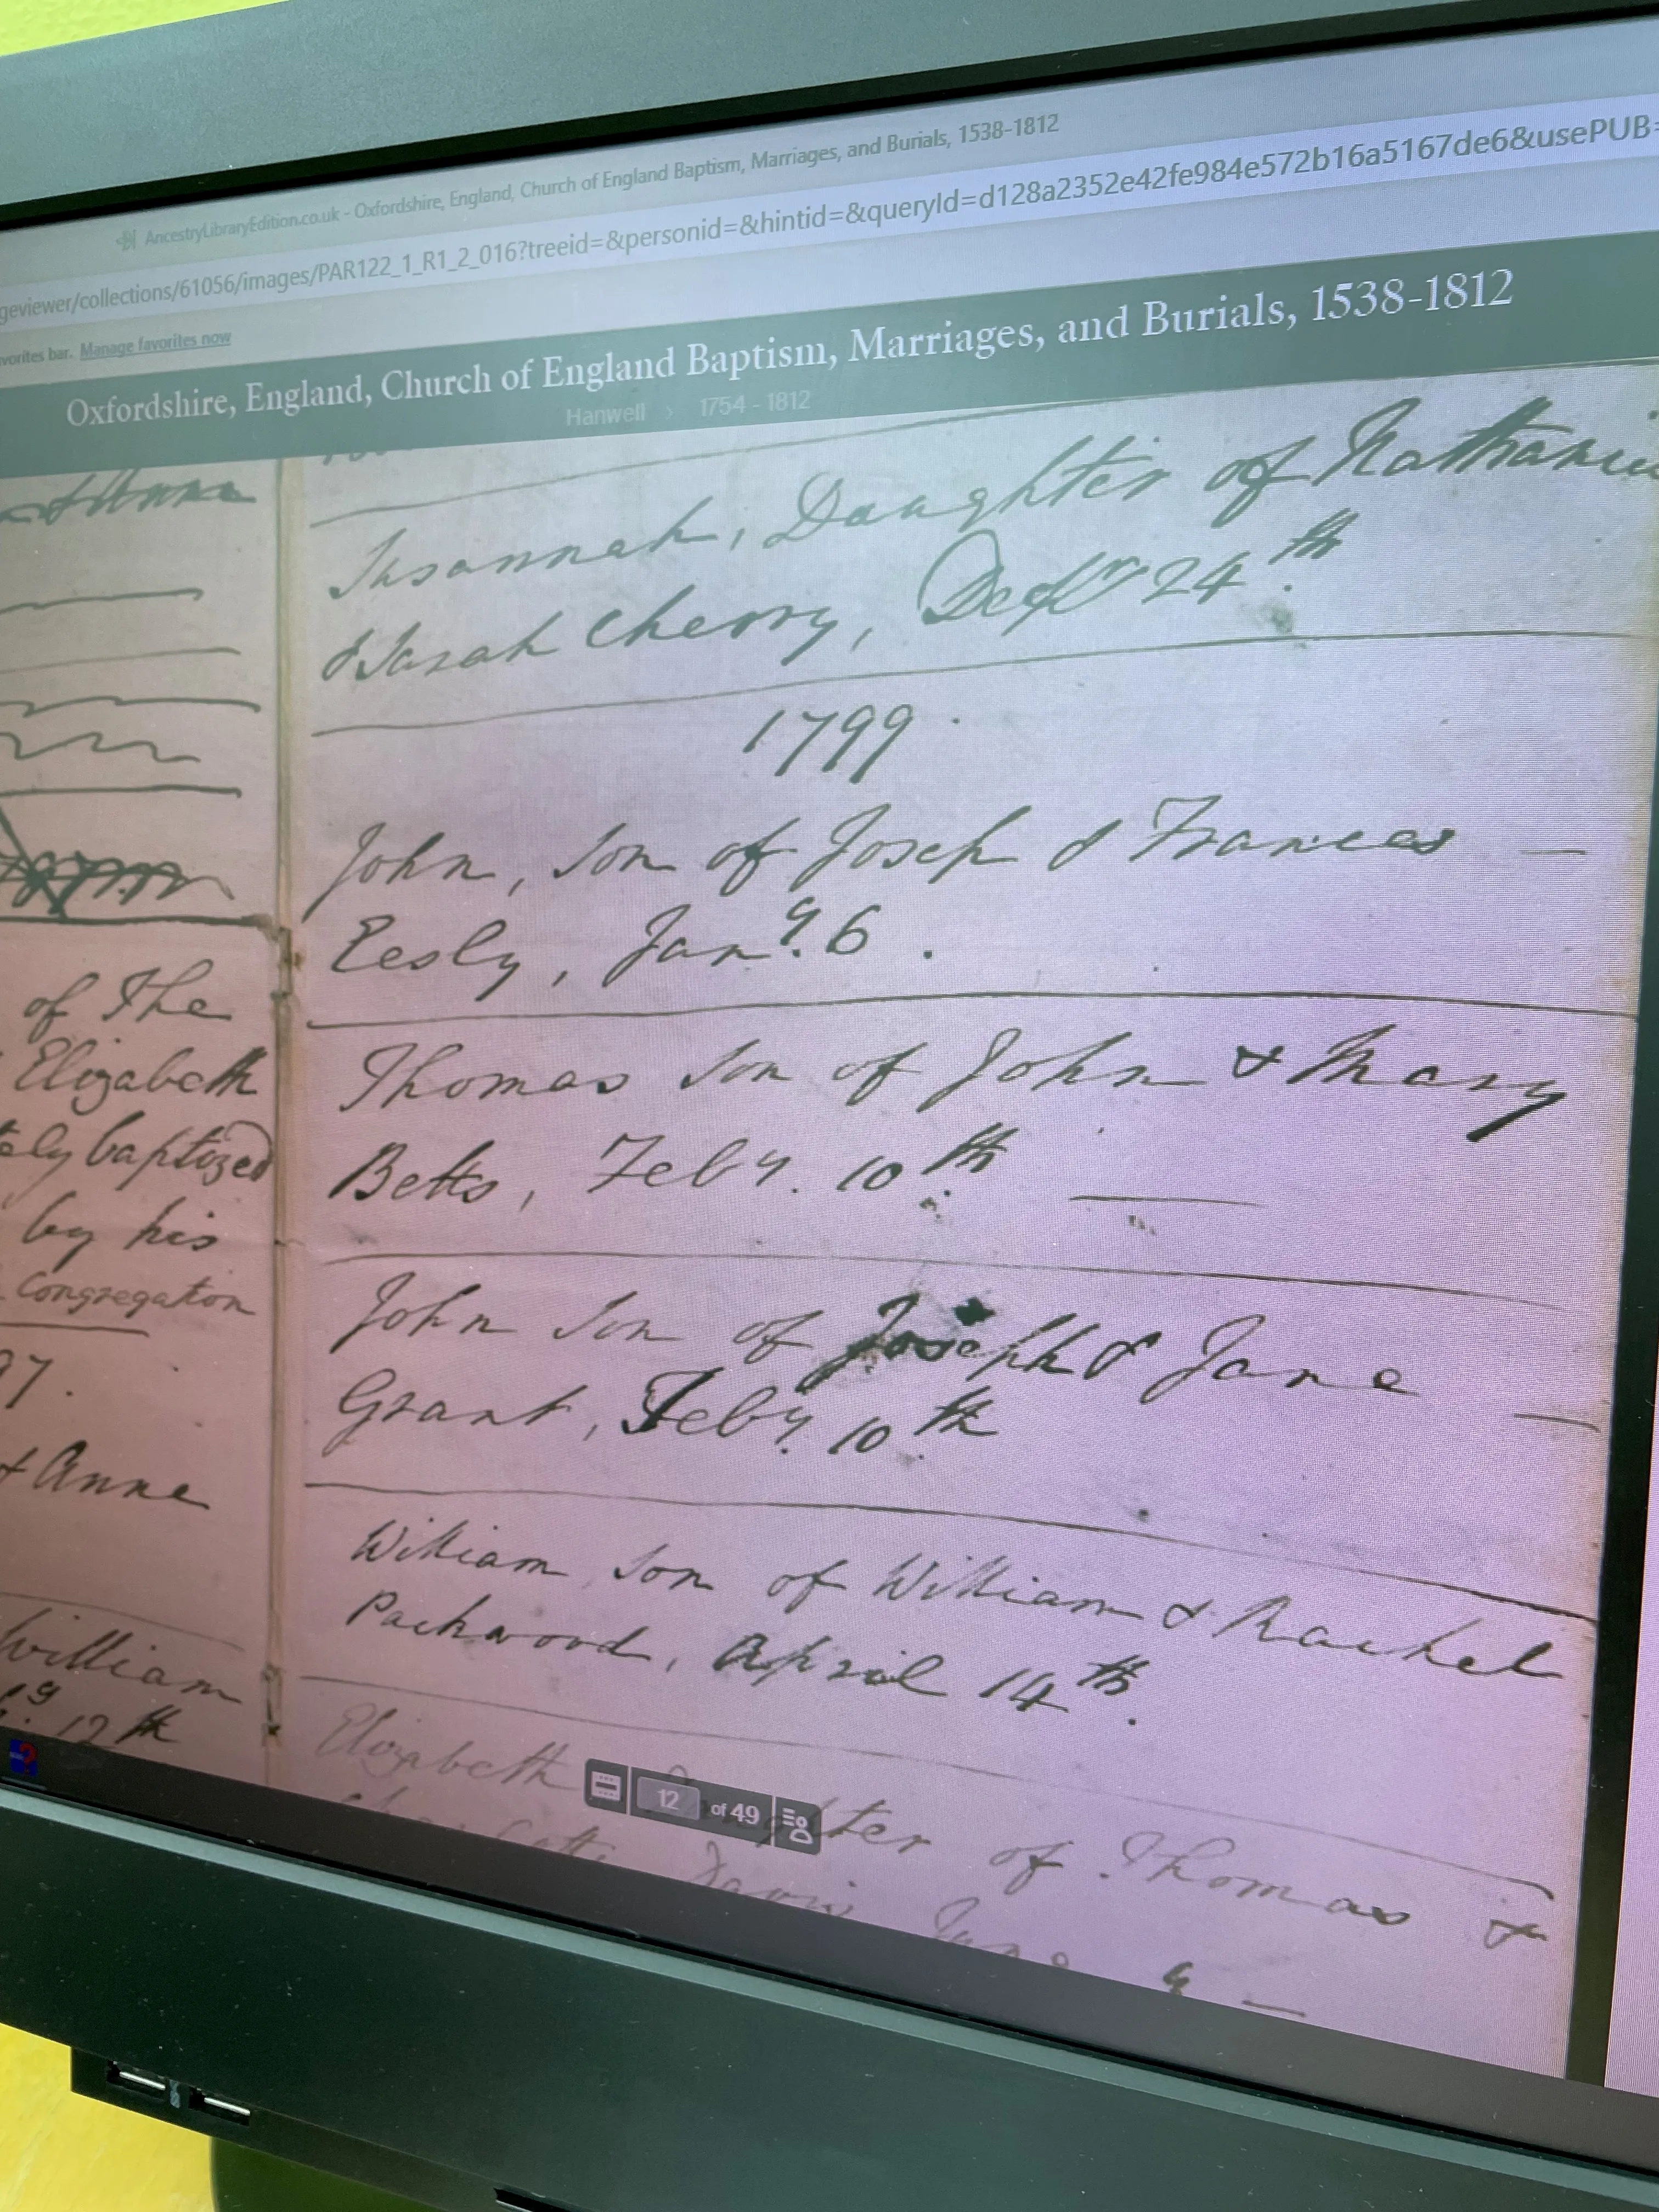 AncestryLibraryEdition.co.uk - Oxfordshire, England, Church of England Baptism, Marriages, and Burials, 1538-1812
geviewer/collections/61056/images/PAR122_1_R1_2_016?treeid=&personid=&hintid=&queryId=d128a2352e42fe984e572b16a5167de6&usePUB=
vorites bar. Manage favorites now
Oxfordshire, England, Church of England Baptism, Marriages, and Burials, 1538-1812
Hanwell > 1754 - 1812
of The
Elizabeth
ely baptized
by his
Congregation
97.
& Anne
William
12th
Susannah, Daughter of Nathanie
& Sarah Cherry, Decr 24th
1799.
John, Son of Joseph & Frances —
Eesly, Jany. 6.
Thomas Son of John & Mary
Betts, Feby. 10th —
John Son of Joseph & Jane —
Grant, Feby. 10th
William Son of William & Rachel
Packwood, April 14th.
Elizabeth Daughter of Thomas &
Davis June 9 —
12 of 49